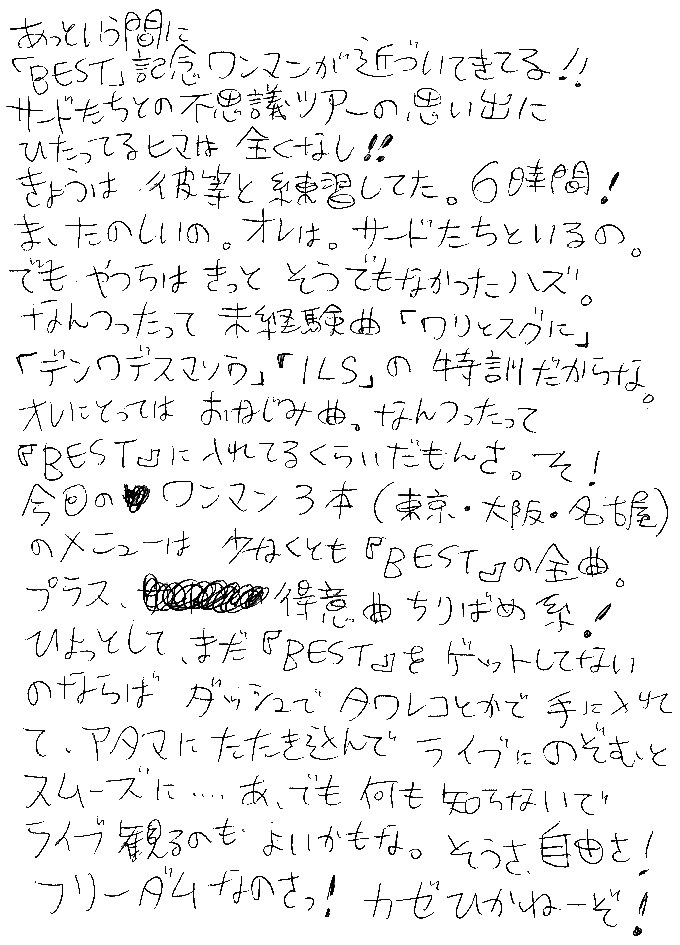 あっという間に
「BEST」記念ワンマンが近づいてきてる!!
サードたちとの不思議ツアーの思い出に
ひたってるヒマは 全くなし!!
きょうは 彼等と練習してた。6時間!
ま、たのしいの。オレは。サードたちといるの。
でも やつらは きっと そうでもなかったハズ。
なんつったって 未経験曲「ワリとスグに」
「デンワデスマソウ」「ILS」の 特訓だからな。
オレにとっては おなじみ曲。なんつったって
『BEST』に入れてるくらいだもんさ。そ!
今回の ワンマン3本(東京・大阪・名古屋)
のメニューは 少なくとも『BEST』の全曲。
プラス、 得意曲ちりばめ系!
ひょっとして、まだ『BEST』を ゲットしてない
のならば ダッシュで タワレコとかで 手に入れて
て、アタマに たたき込んで ライブに のぞむと
スムーズに.... あ、でも 何も 知らないで
ライブ観るのも よいかもな。そうさ、自由さ!
フリーダムなのさっ! カゼひかねーぞ!